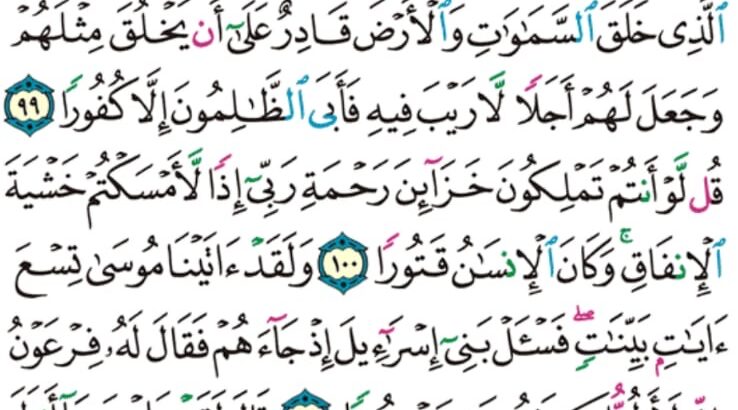 ٱلَّذِى خَلَقَ ٱلسَّمَٰوَٰتِ وَٱلْأَرْضَ قَادِرٌ عَلَىٰٓ أَن يَخْلُقَ مِثْلَهُمْ
وَجَعَلَ لَهُمْ أَجَلًا لَّا رَيْبَ فِيهِ فَأَبَى ٱلظَّٰلِمُونَ إِلَّا كُفُورًا ٩٩
قُل لَّوْ أَنتُمْ تَمْلِكُونَ خَزَآئِنَ رَحْمَةِ رَبِّىٓ إِذًا لَّأَمْسَكْتُمْ خَشْيَةَ
ٱلْإِنفَاقِ ۚ وَكَانَ ٱلْإِنسَٰنُ قَتُورًا ١٠٠ وَلَقَدْ ءَاتَيْنَا مُوسَىٰ تِسْعَ
ءَايَٰتٍۭ بَيِّنَٰتٍ ۖ فَسْـَٔلْ بَنِىٓ إِسْرَٰٓءِيلَ إِذْ جَآءَهُمْ فَقَالَ لَهُۥ فِرْعَوْنُ